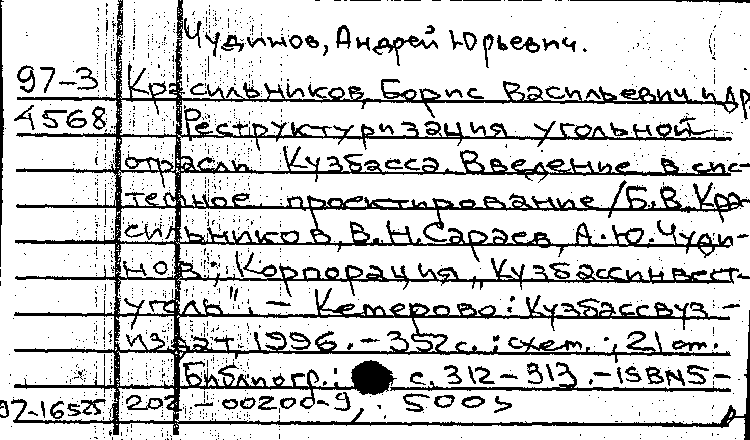 Чудинов, Андрей Юрьевич.
97-3 Красильников, Борис Васильевич и др
4568 Реструктуризация угольной
отрасли Кузбасса. Введение в сис-
темное проектирование / Б.В. Кра-
сильников, В.Н. Сараев, А.Ю. Чуди-
нов; Корпорация „Кузбассинвест-
уголь". - Кемерово: Кузбассвуз-
издат, 1996. - 352 с.: схем.; 21 см.
Библиогр.: с. 312-313. - ISBN 5-
97-16525 202-00200-9, : 500э